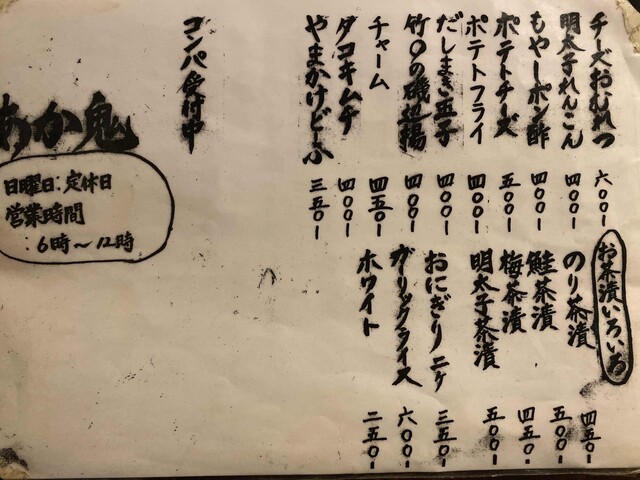 チーズおむれつ 六〇〇-
明太子れんこん 四〇〇-
もやしポン酢 四〇〇-
ポテトチーズ 五〇〇-
ポテトフライ 四〇〇-
だしまき玉子 四〇〇-
竹〇の磯辺揚 四〇〇-
チャーム 四五〇-
タコキムチ 四〇〇-
やまかけどーふ 三五〇-
お茶漬いろいろ
のり茶漬 四五〇-
鮭茶漬 五〇〇-
梅茶漬 四五〇-
明太子茶漬 五〇〇-
おにぎり二ヶ 三五〇-
ガーリックライス 六〇〇-
ホワイト 二五〇-
コンパ受付中
あか鬼
日曜日:定休日
営業時間
:6時~12時